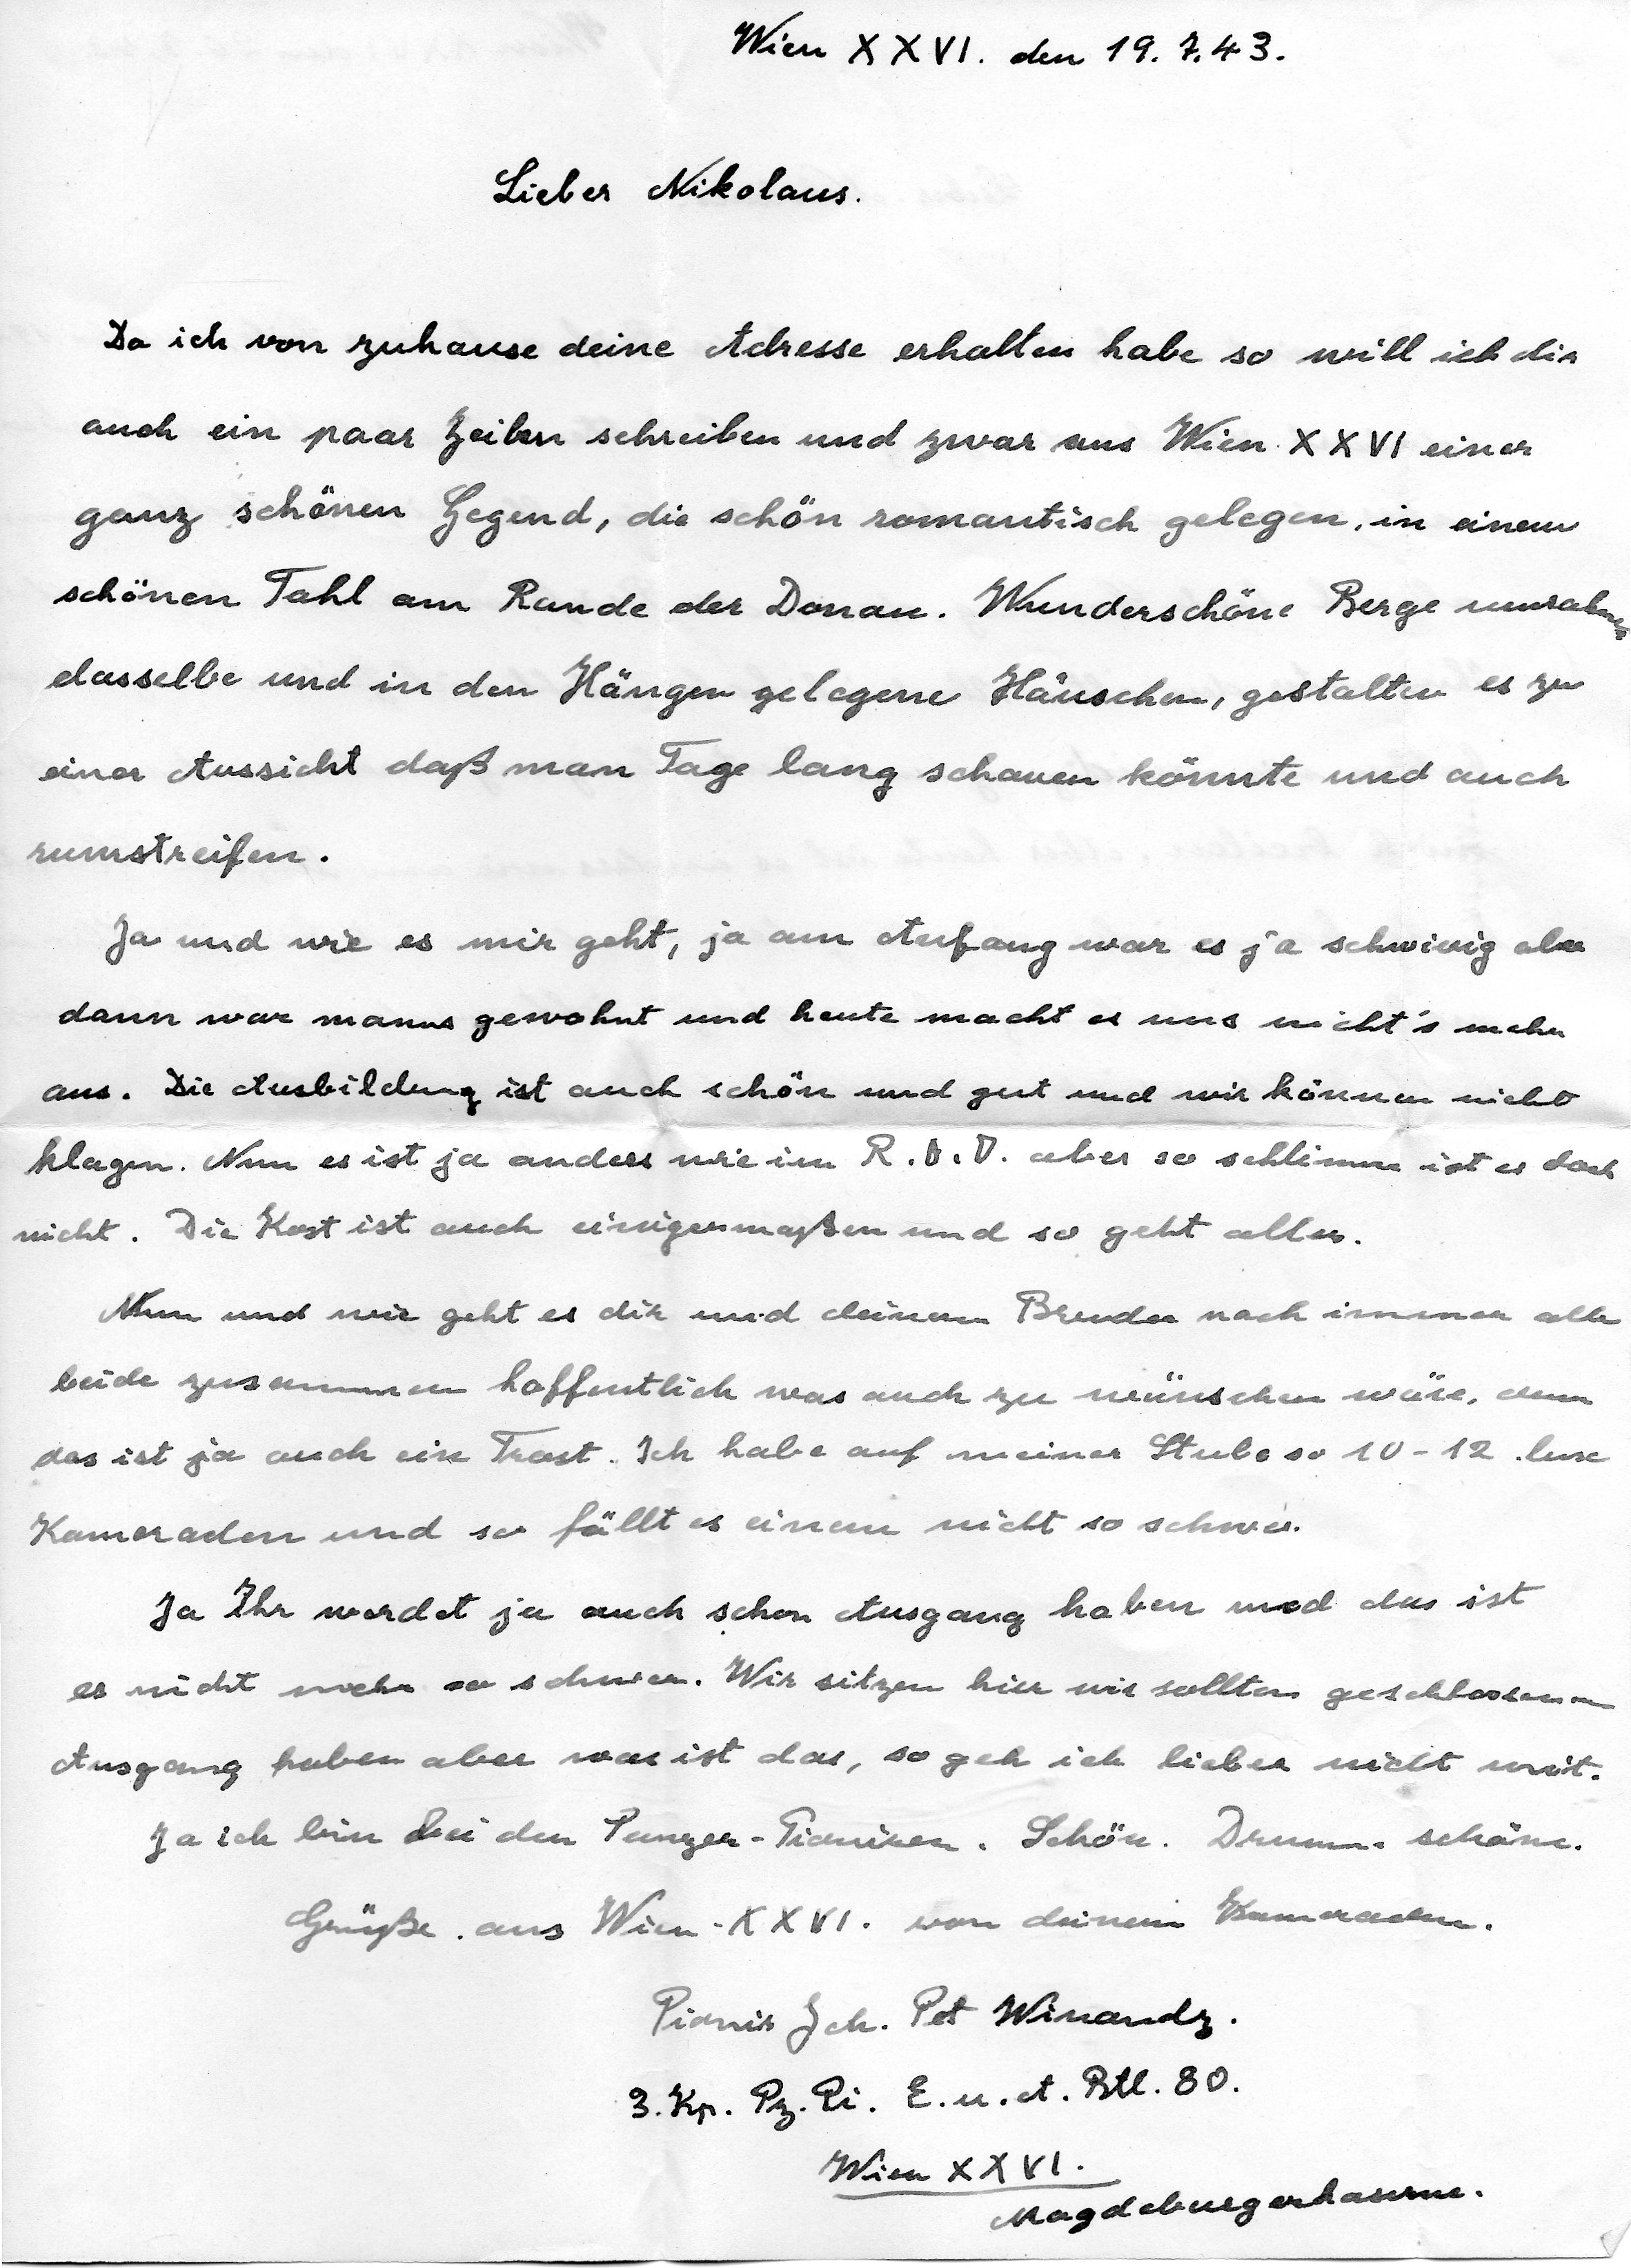 Wien XXVI. den 19.7.43.
Lieber Nikolaus.
Da ich von zuhause deine Adresse erhalten habe so will ich dir
auch ein paar Zeilen schreiben und zwar aus Wien XXVI einer
ganz schönen Gegend, die schön romantisch gelegen, in einem
schönen Tahl am Rande der Donau. Wunderschöne Berge umrahmen
dasselbe und in den Hängen gelegene Häuschen, gestalten es zu
einer Aussicht daß man Tage lang schauen könnte und auch
rumstreifen.
Ja und wie es mir geht, ja am Anfang war es ja schwirig aber
dann war mans gewohnt und heute macht es uns nicht's mehr
aus. Die Ausbildung ist auch schön und gut und wir können nicht
klagen. Nun es ist ja anders wie im R.A.D. aber so schlimm ist es doch
nicht. Die Kost ist auch einigermaßen und so geht alles.
Nun und wie geht es dir und deinem Bruder noch immer alle
beide zusammen hoffentlich was auch zu wünschen wäre, denn
das ist ja auch ein Trost. Ich habe auf meiner Stube so 10-12
Kameraden und so fällt es einem nicht so schwer.
Ja Ihr werdet ja auch schon Ausgang haben und das ist
es nicht mehr so schwer. Wir sitzen hier wir sollten geschlossenen
Ausgang haben aber was ist das, so geh ich lieber nicht mit.
Ja ich bin bei den Panzer-Pionieren. Schön. Drum schöne.
Grüße aus Wien-XXVI. von deinem Kameraden.
Pionier Joh. Pet Winandz.
3. Kp. Pz. Pi. E. u. A. Btl. 80.
Wien XXVI.
Magdeburgerkaserne.